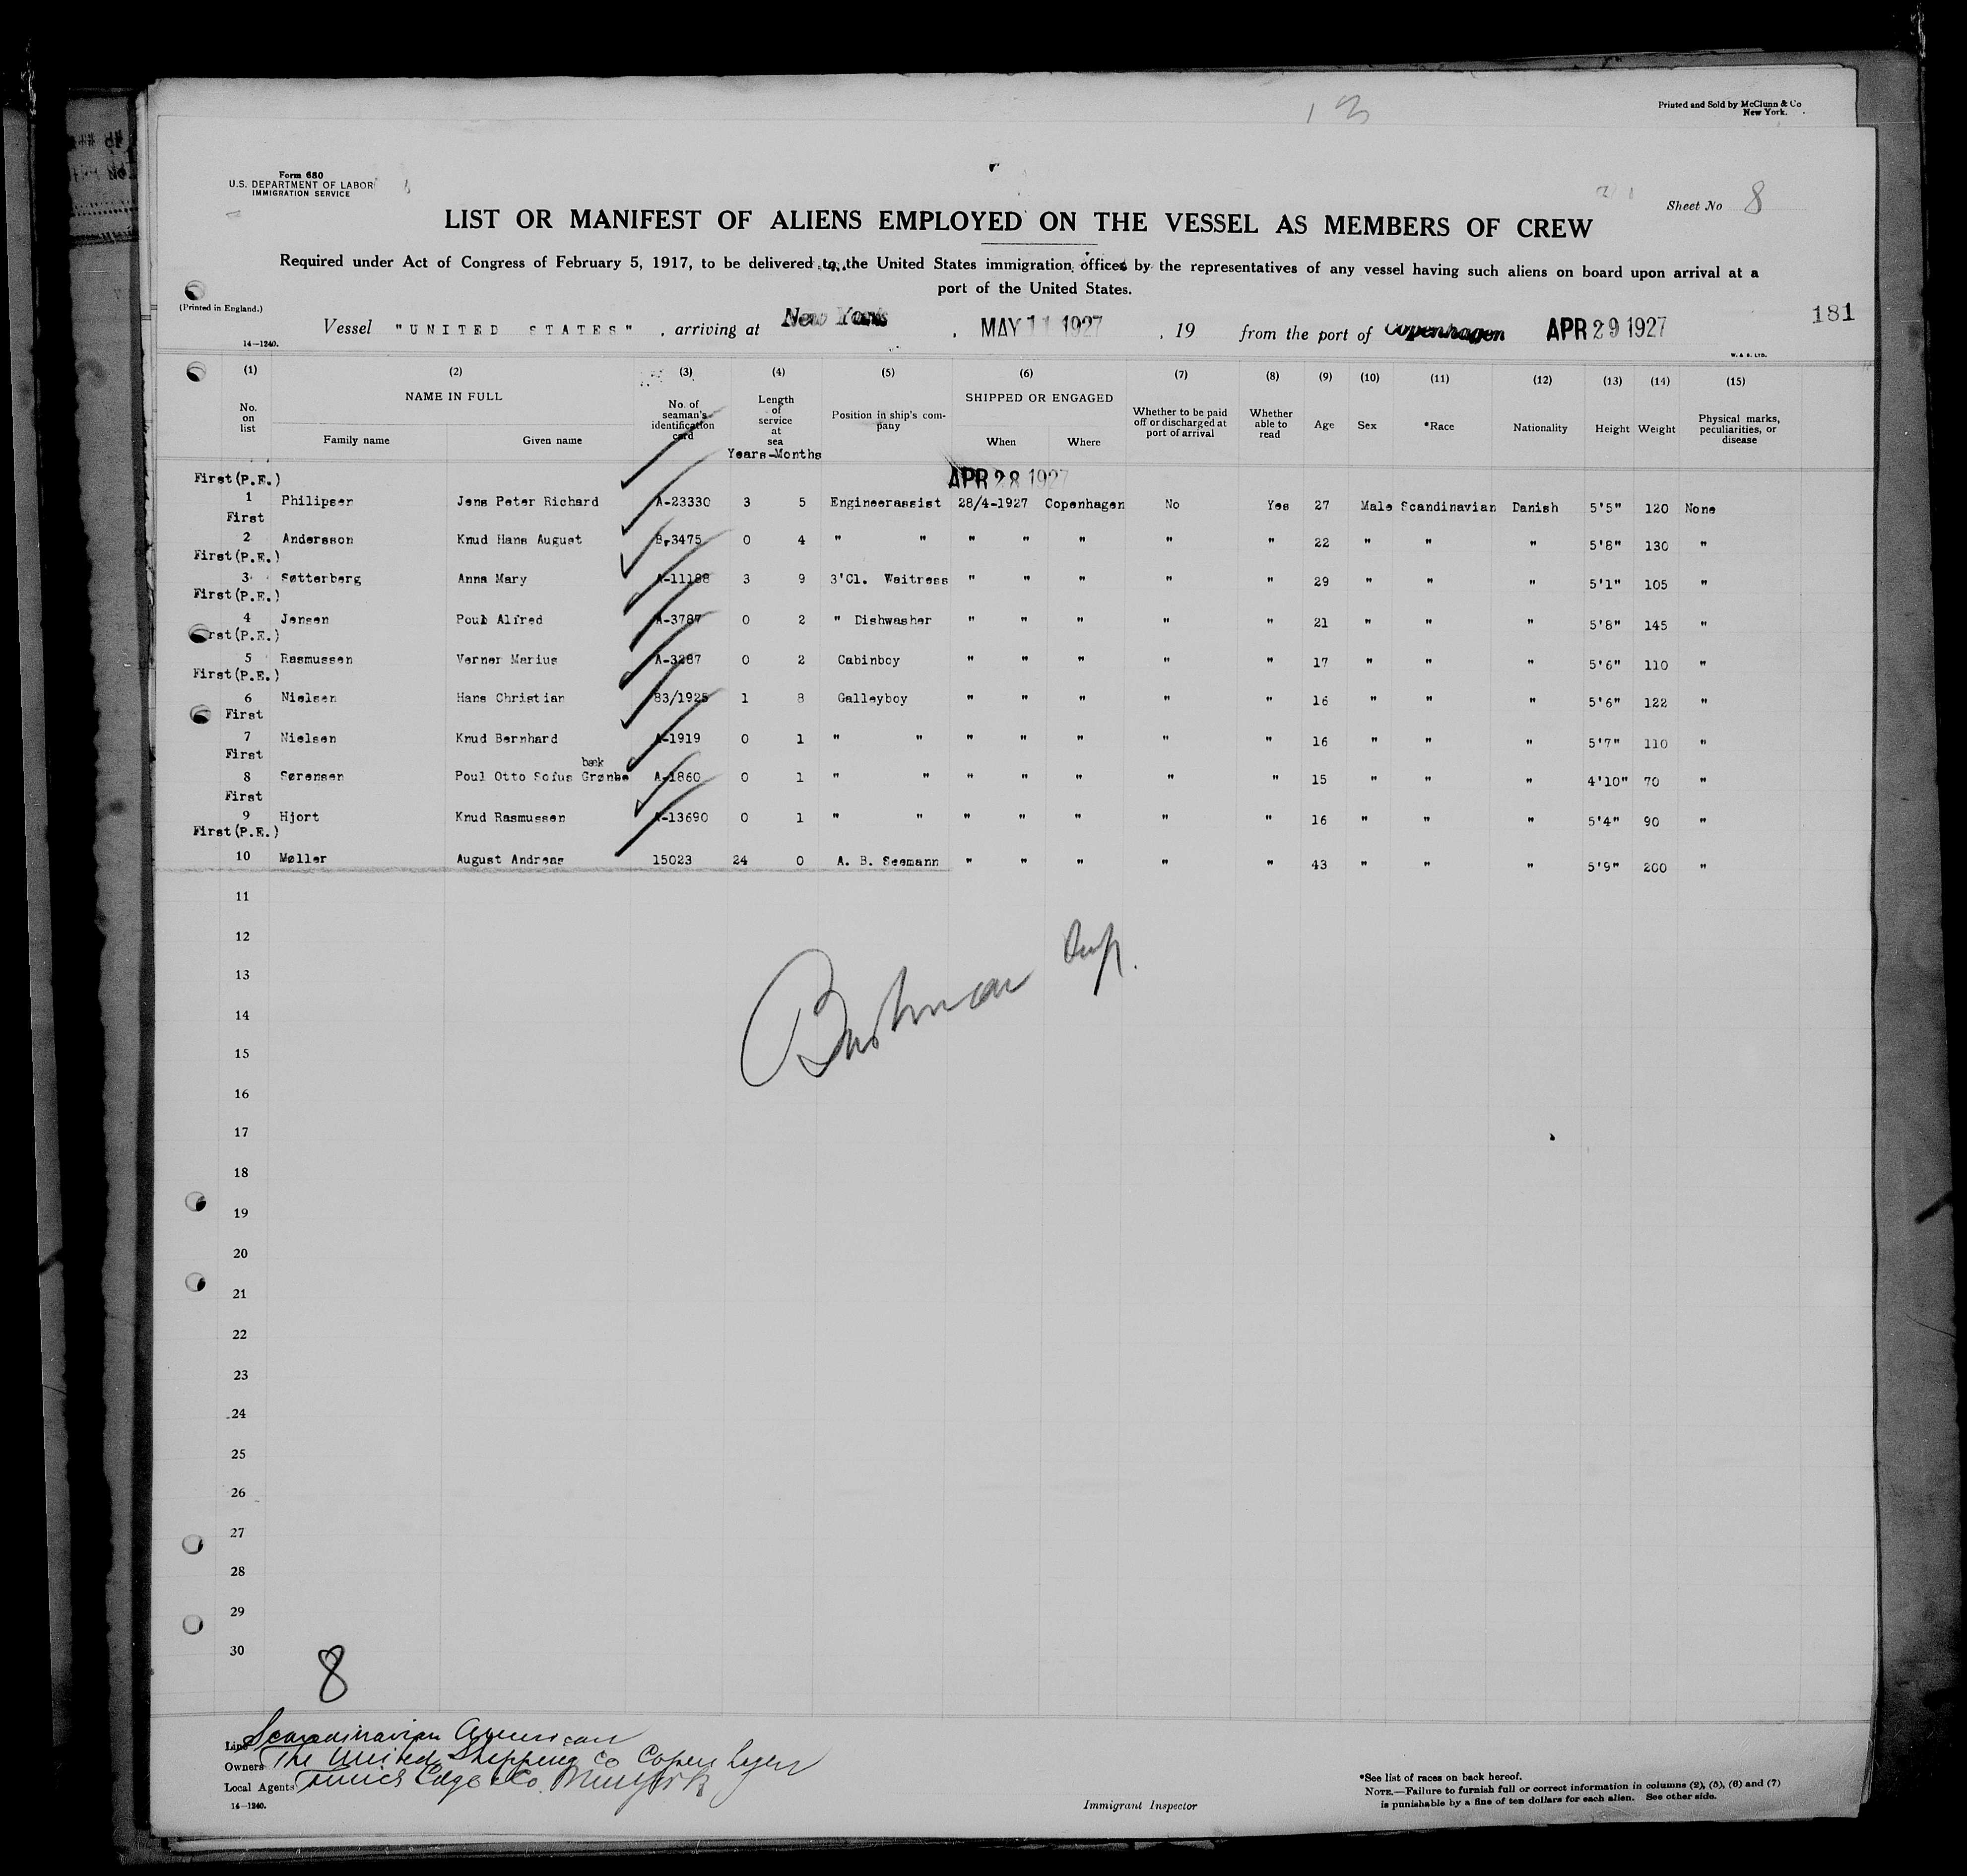 13
Printed and Sold by McClunn & Co
New York.
Form 680
U.S. DEPARTMENT OF LABOR
IMMIGRATION SERVICE
Sheet No 8
LIST OR MANIFEST OF ALIENS EMPLOYED ON THE VESSEL AS MEMBERS OF CREW
Required under Act of Congress of February 5, 1917, to be delivered to the United States immigration officer by the representatives of any vessel having such aliens on board upon arrival at a
port of the United States.
(Printed in England.)
181
Vessel "UNITED STATES" , arriving at New York , MAY 11 1927 , 19 from the port of Copenhagen APR 29 1927
14—1240.
W. & S. LTD.
(1) (2) (3) (4) (5) (6) (7) (8) (9) (10) (11) (12) (13) (14) (15)
No. on list NAME IN FULL Family name Given name No. of seaman's identification card Length of service at sea Years-Months Position in ship's company SHIPPED OR ENGAGED When Where Whether to be paid off or discharged at port of arrival Whether able to read Age Sex *Race Nationality Height Weight Physical marks, peculiarities, or disease
First(P.E.) APR 28 1927
1 Philipsen Jens Peter Richard A-23330 3 5 Engineerassist 28/4-1927 Copenhagen No Yes 27 Male Scandinavian Danish 5'5" 120 None
First
2 Andersson Knud Hans August B-3475 0 4 " " " " " " " 22 " " " 5'8" 130 "
First(P.E.)
3 Søtterberg Anna Mary A-11188 3 9 3'Cl. Waitress " " " " " 29 " " " 5'1" 105 "
First(P.E.)
4 Jensen Poul Alfred A-3787 0 2 " Dishwasher " " " " " 21 " " " 5'8" 145 "
rst(P.E.)
5 Rasmussen Verner Marius A-3287 0 2 Cabinboy " " " " " 17 " " " 5'6" 110 "
First(P.E.)
6 Nielsen Hans Christian 83/1925 1 8 Galleyboy " " " " " 16 " " " 5'6" 122 "
First
7 Nielsen Knud Bernhard A-1919 0 1 " " " " " " " 16 " " " 5'7" 110 "
First bæk
8 Sørensen Poul Otto Sofus Grønbe A-1860 0 1 " " " " " " " 15 " " " 4'10" 70 "
First
9 Hjort Knud Rasmussen A-13690 0 1 " " " " " " " 16 " " " 5'4" 90 "
First(P.E.)
10 Møller August Andreas 15023 24 0 A. B. Seemann " " " " " 43 " " " 5'9" 200 "
11
12
13
14
15
16
17
18
19
20
21
22
23
24
25
26
27
28
29
30
8
Line Scandinavian American
Owners The United Shipping Co Copenhagen
Local Agents Co. New York
14—1240.
Immigrant Inspector
*See list of races on back hereof.
NOTE.—Failure to furnish full or correct information in columns (2), (5), (6) and (7)
is punishable by a fine of ten dollars for each alien. See other side.